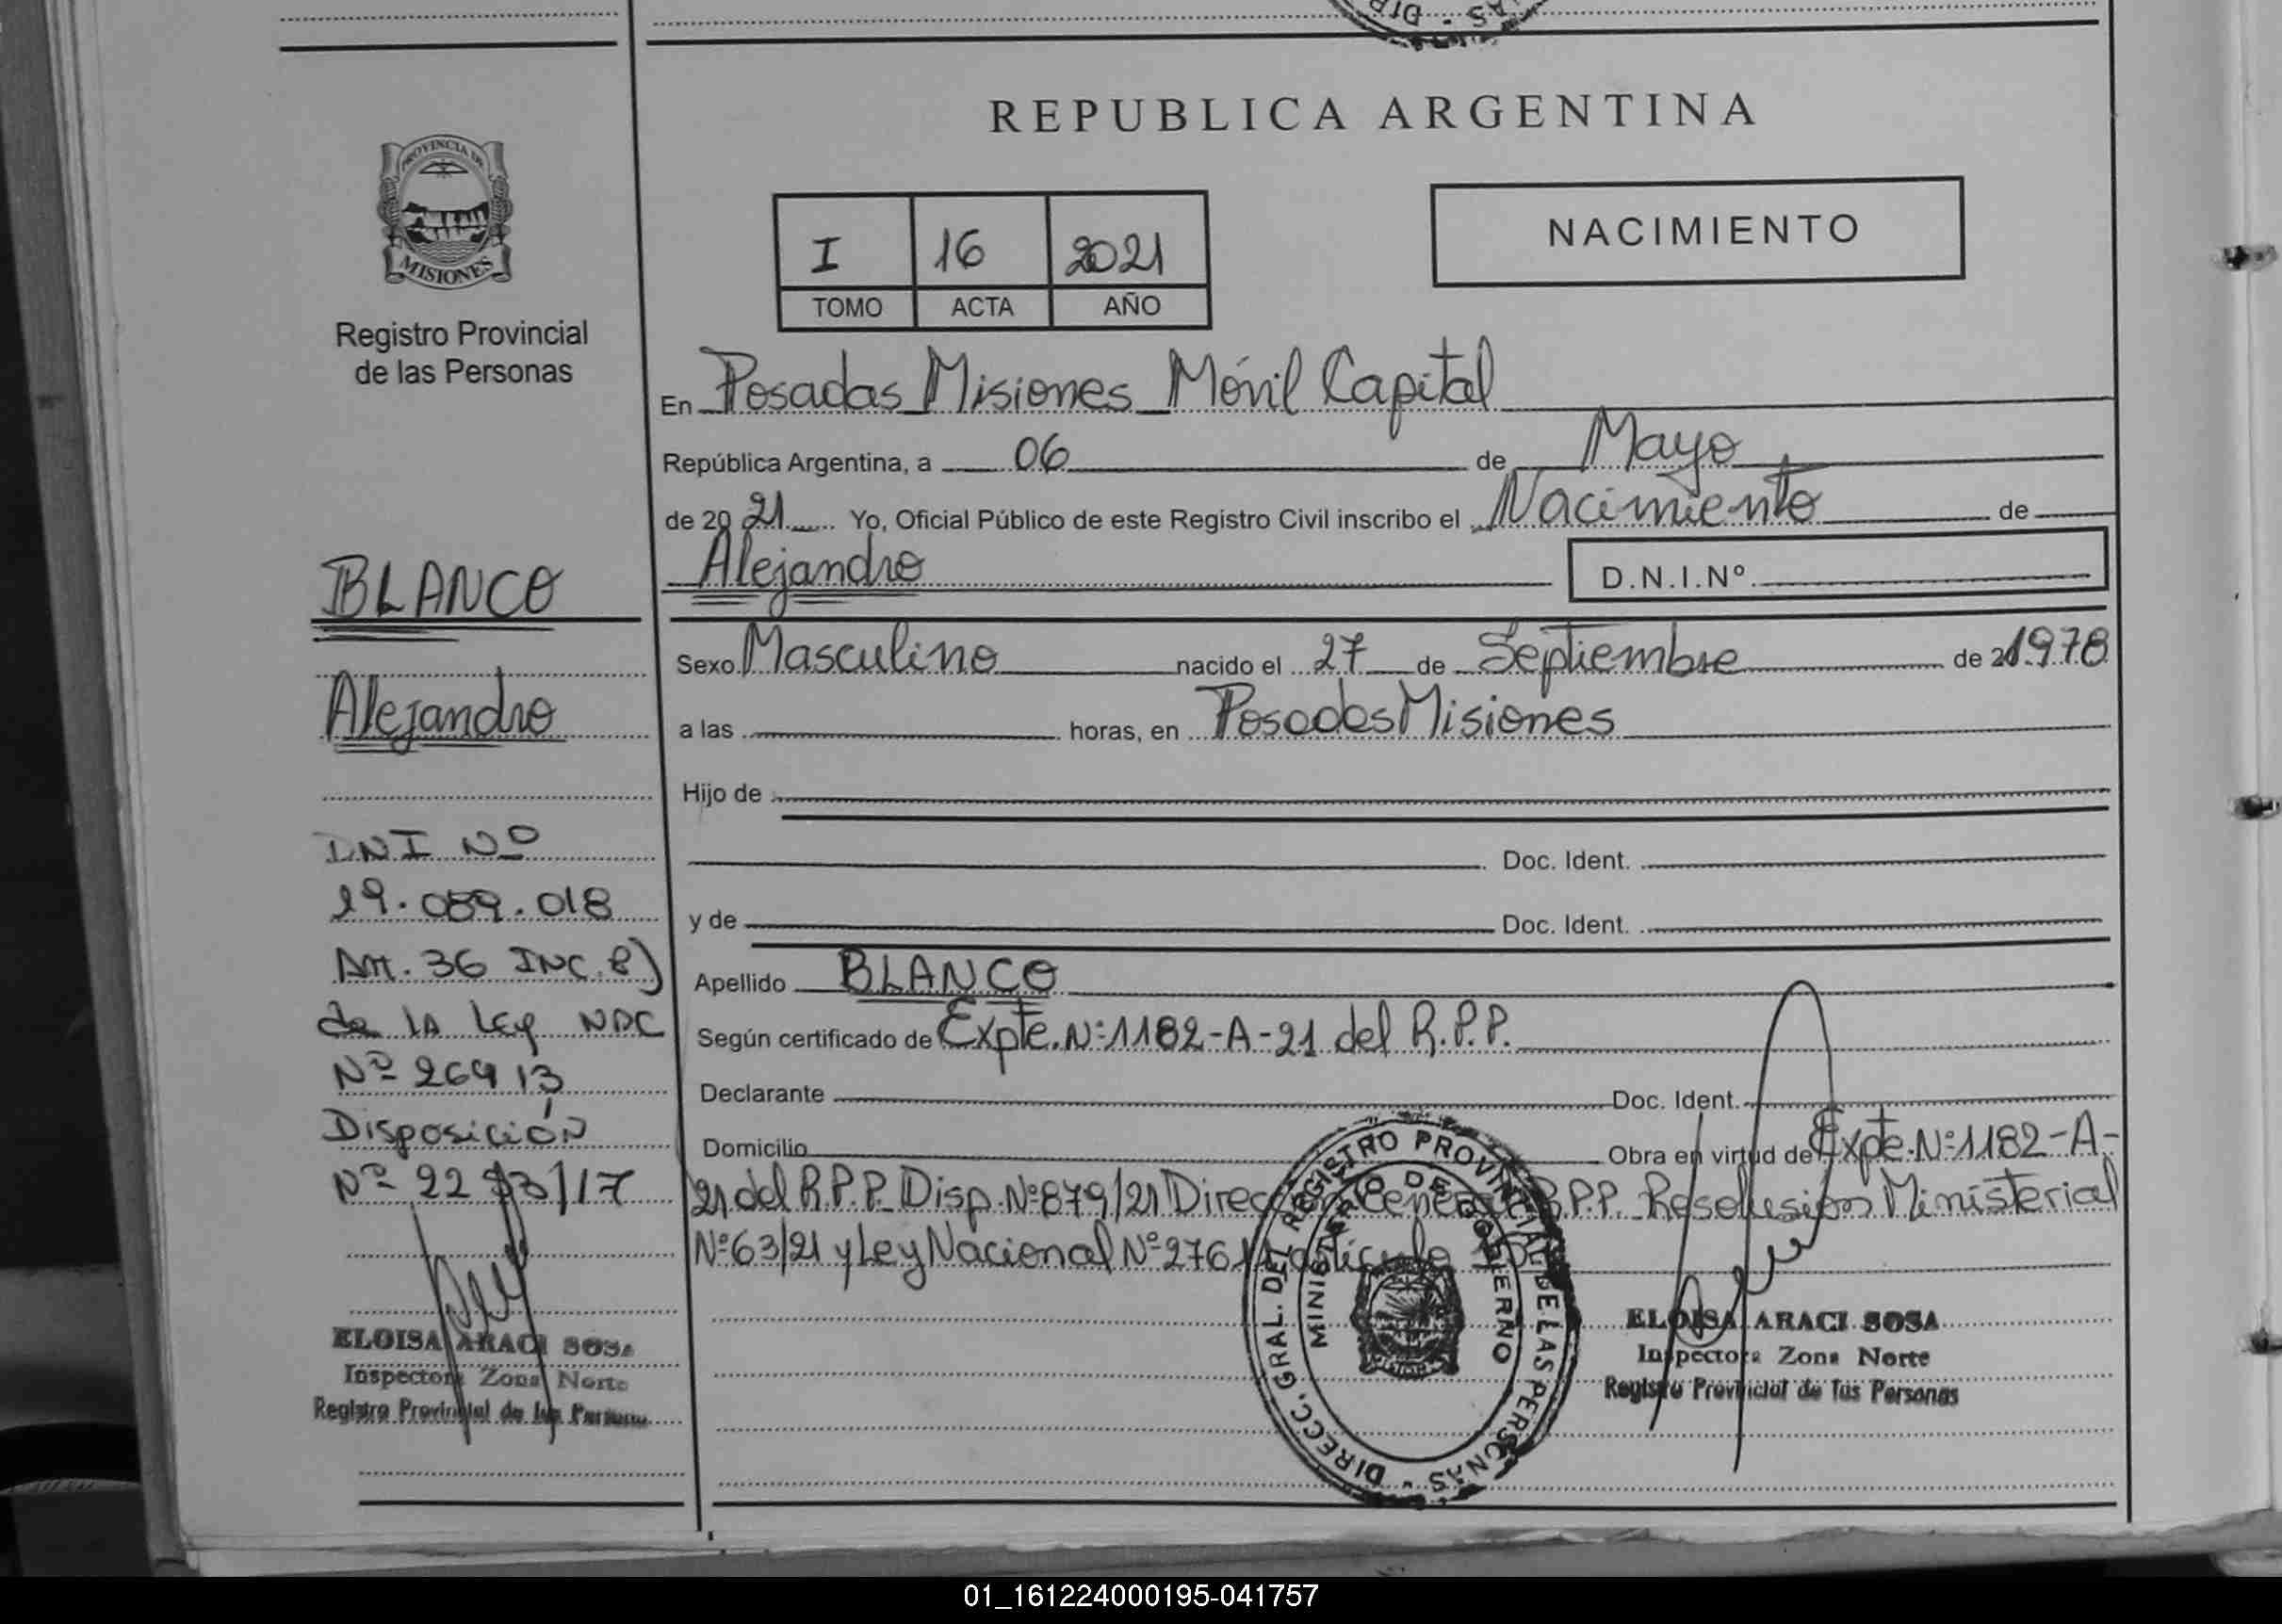 REPUBLICA ARGENTINA
PROVINCIA DE
MISIONES
Registro Provincial
de las Personas
I 16 2021
TOMO ACTA AÑO
NACIMIENTO
En Posadas Misiones Móvil Capital
República Argentina, a 06 de Mayo
de 2021 Yo, Oficial Público de este Registro Civil inscribo el Nacimiento de
Alejandro D.N.I.Nº
Sexo Masculino nacido el 27 de Septiembre de 1978
a las horas, en Posadas Misiones
Hijo de
Doc. Ident.
y de Doc. Ident.
Apellido BLANCO
Según certificado de Expte. Nº 1182-A-21 del R.P.P.
Declarante Doc. Ident.
Domicilio Obra en virtud de Expte. Nº 1182-A-
21 del R.P.P. Disp. Nº 879/21 Dirección General R.P.P. Resolusión Ministerial
Nº 63/21 y Ley Nacional Nº artículo
BLANCO
Alejandro
DNI Nº
19.089.018
Art. 36 INC.
de la Ley NAC
Nº 26413
Disposición
Nº 22 /17
ELOISA ARACI SOSA
Inspectora Zona Norte
Registro Provincial de las Personas
DIRECC. GRAL. DEL REGISTRO PROVINCIAL DE LAS PERSONAS
MINISTERIO DE GOBIERNO
ELOISA ARACI SOSA
Inspectora Zona Norte
Registro Provincial de las Personas
01_161224000195-041757